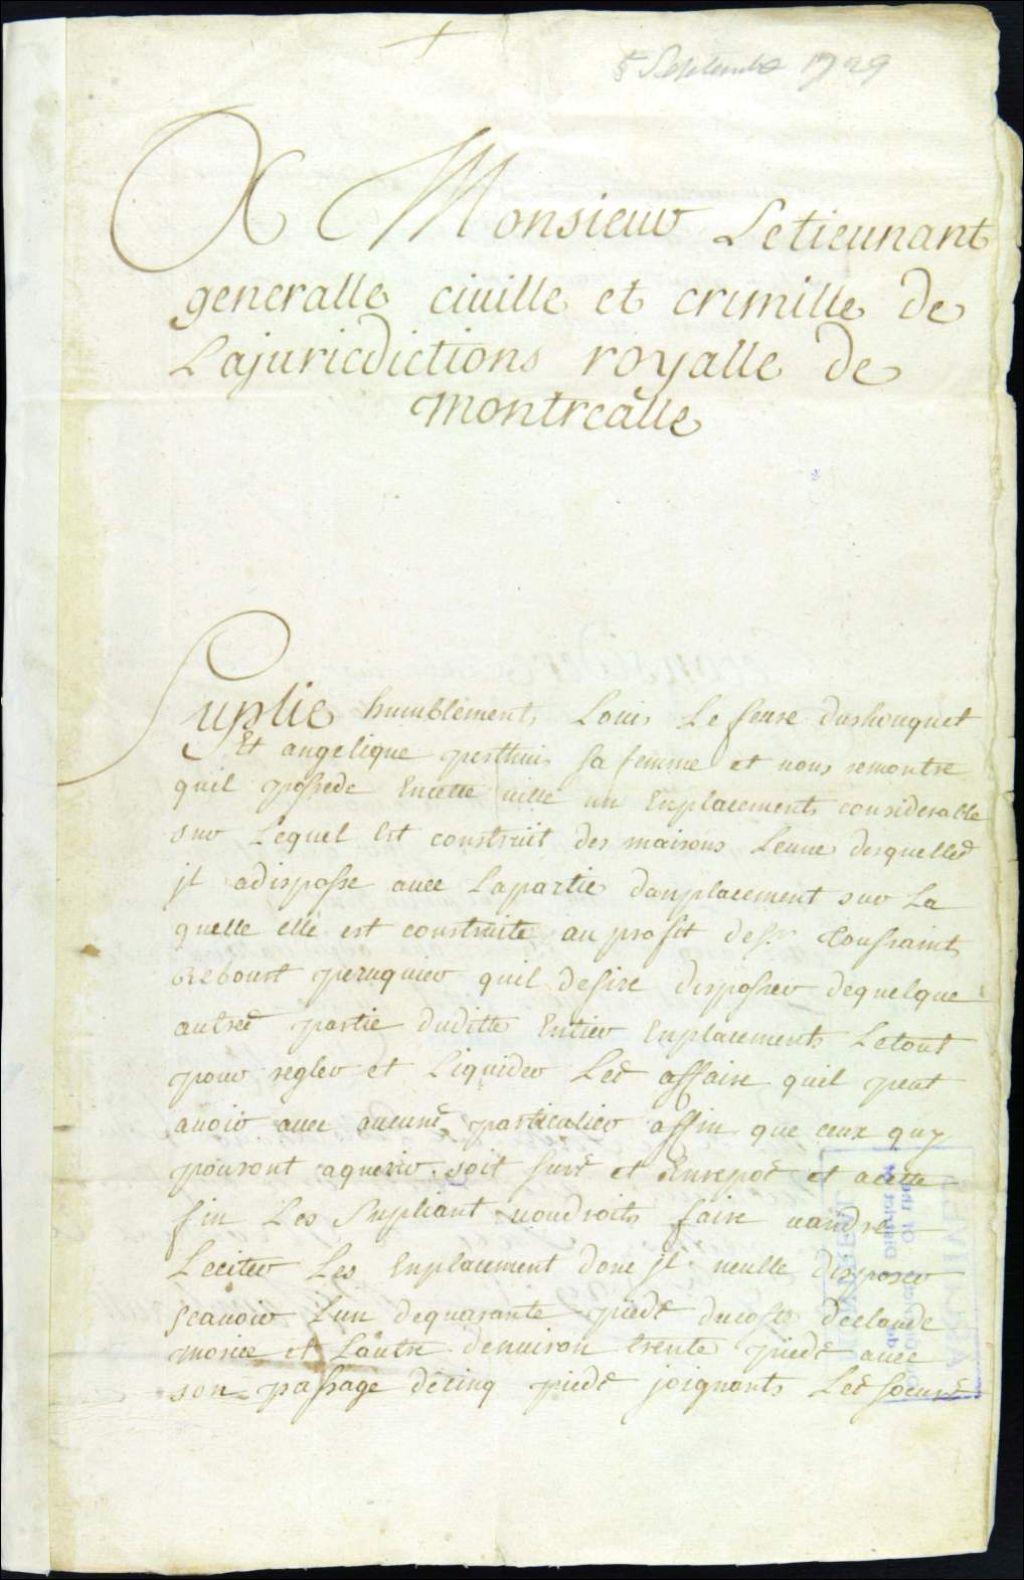 5 Septembre 1729
A Monsieur Letieunant
generalle ciuille et crimille de
Lajuricdictions royalle de
Montrealle
Suplie humblement Louis Lefeure dushouquet
Et angelique perthuis sa femme et nous remontre
quil possede Encette uille un Enplacements considerable
sur Lequel Est construit des maisons Leune desquelles
jl adisposse auec Lapartie danplacement sur La
quelle elle est construite au profit de sr. toussaint
peruquier quil desire disposser dequelque
autres partie duditte Entier Enplacements Letout
pour regler et Liquider Les affaire quil peut
auoir auec aucuns particulier affin que ceux quy
pouront aquerir soit sure et Enrepos et acette
fin Les supliant uoudroits faire uandre
Leciter Les Enplacement donc jl ueulle disposer
scauoir Lun dequarante pieds ducoste declaude
morice et Lautre denuiron trente pieds auec
son passage decinq pieds joignants Les soeurs